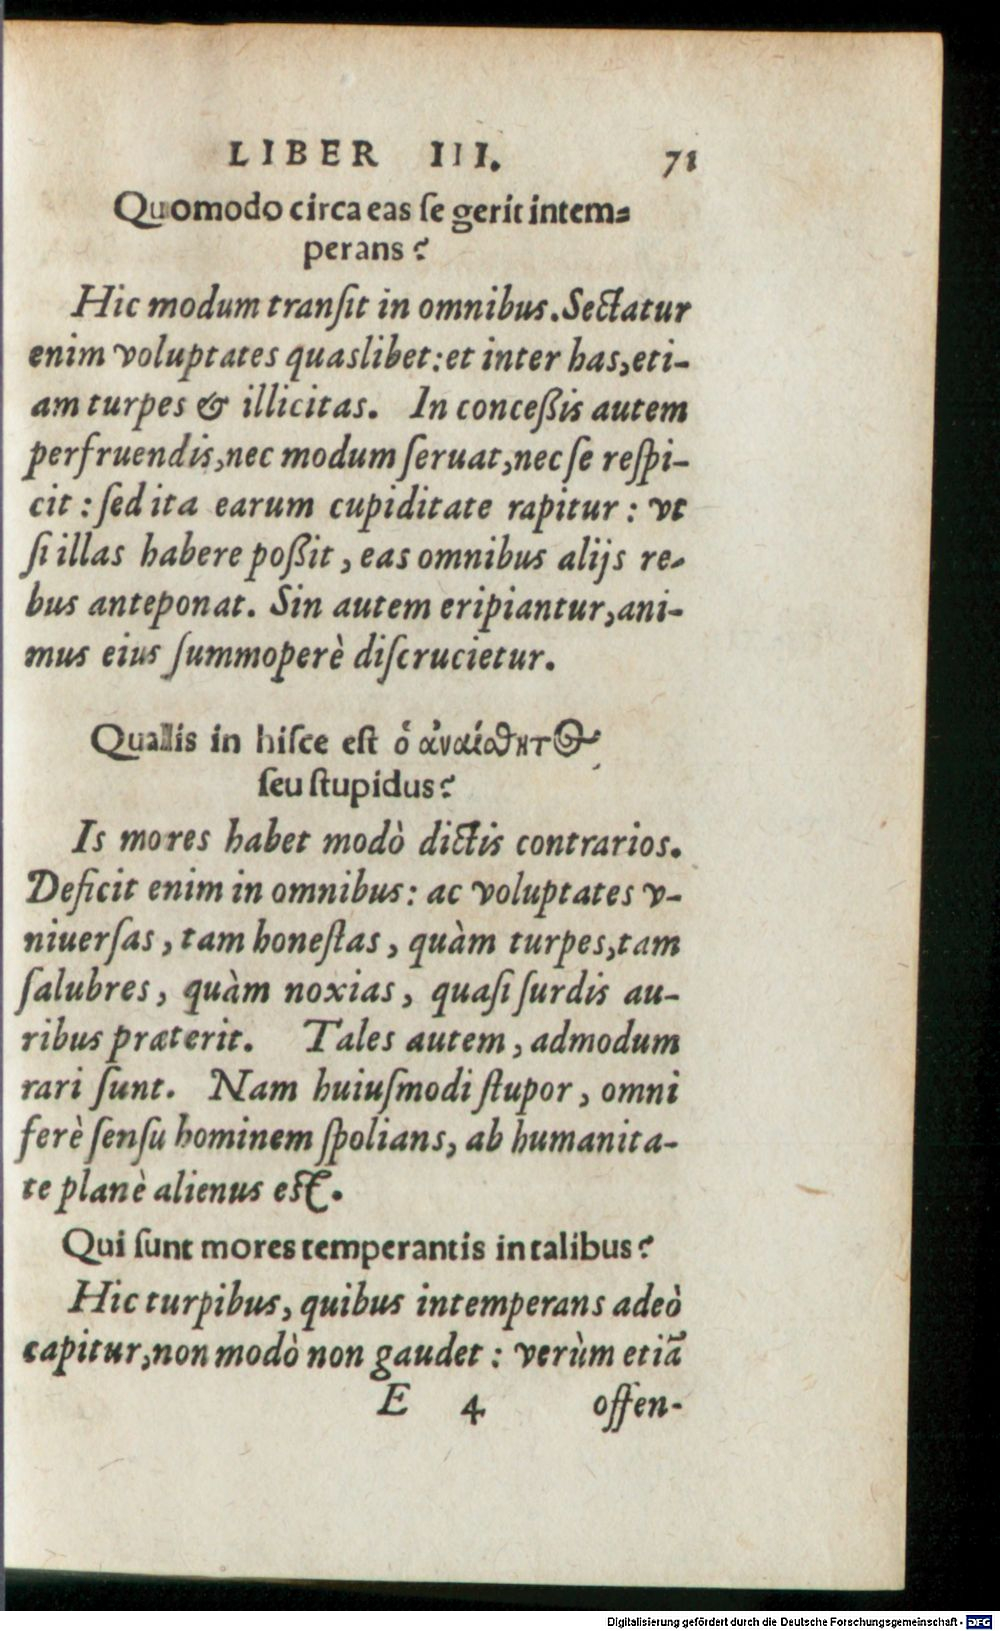 LIBER III. 71
Quomodo circa eas ſe gerit intem=
perans?
Hic modum tranſit in omnibus. Sectatur
enim voluptates quaslibet: et inter has, eti-
am turpes & illicitas. In conceßis autem
perfruendis, nec modum ſeruat, nec ſe reſpi-
cit: ſed ita earum cupiditate rapitur: vt
ſi illas habere poßit, eas omnibus alijs re-
bus anteponat. Sin autem eripiantur, ani-
mus eius ſummoperè diſcrucietur.
Qualis in hiſce eſt ὁ ἀναίσθητος
ſeu ſtupidus?
Is mores habet modò dictis contrarios.
Deficit enim in omnibus: ac voluptates v-
niuerſas, tam honeſtas, quàm turpes, tam
ſalubres, quàm noxias, quaſi ſurdis au-
ribus præterit. Tales autem, admodum
rari ſunt. Nam huiuſmodi ſtupor, omni
ferè ſenſu hominem ſpolians, ab humanita-
te planè alienus eſt.
Qui ſunt mores temperantis in talibus?
Hic turpibus, quibus intemperans adeò
capitur, non modò non gaudet: verùm etiã
E 4 offen-
Digitalisierung gefördert durch die Deutsche Forschungsgemeinschaft - DFG